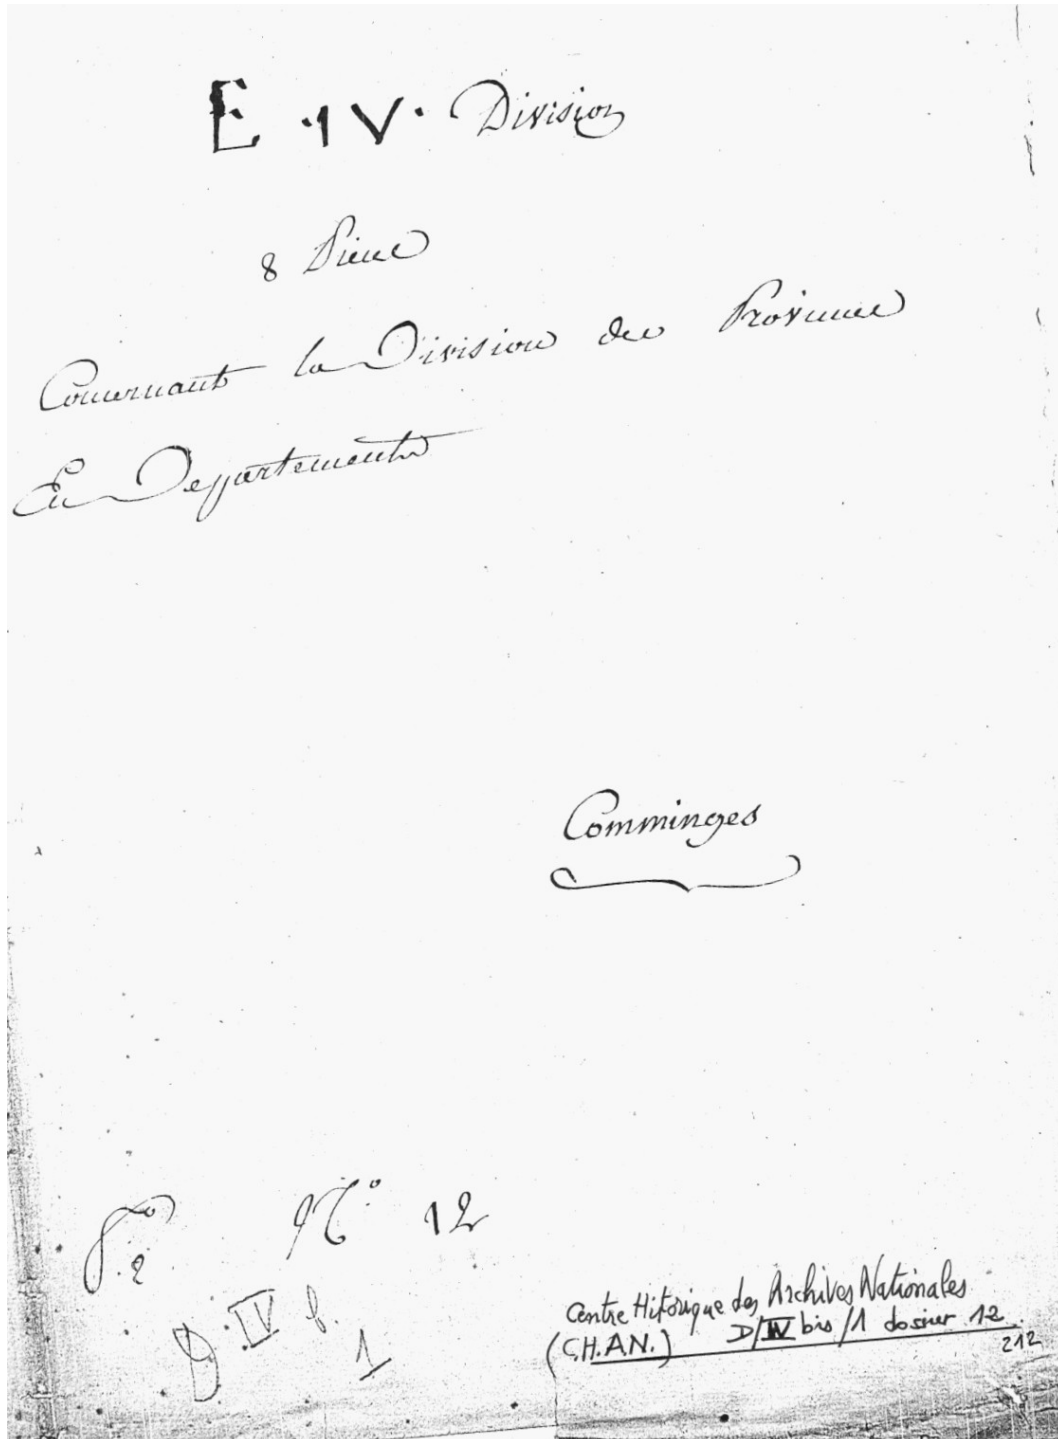 E · IV · Division
8 Pieces
Concernant la Division des Provinces
En Departements
Comminges
N.° 12
D. IV b.
1
Centre Historique des Archives Nationales
(C.H.A.N.) D/IV bis/1 dossier 12
212